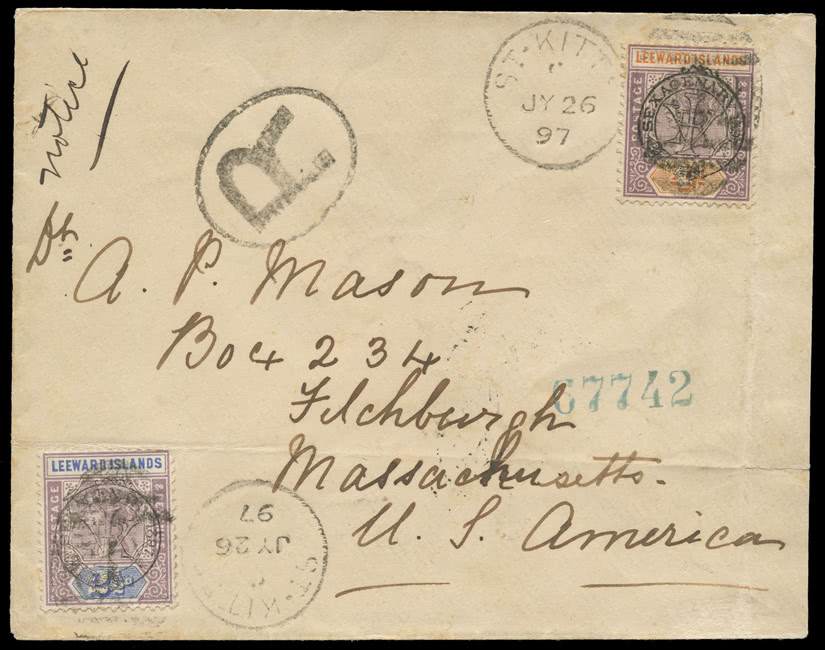 notice
ST. KITT
C
JY 26
97
LEEWARD ISLANDS
POSTAGE
SEXAGENARY
R
Dr
A. P. Mason
Box 234
Fitchburgh
67742
Massachusetts.
U. S. America
LEEWARD ISLANDS
POSTAGE
ST. KITT
C
JY 26
97